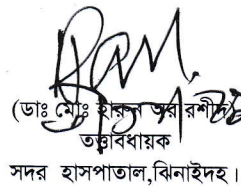 (ডাঃ মোঃ হারুন অর রশীদ)
তত্ত্বাবধায়ক
সদর হাসপাতাল,ঝিনাইদহ।